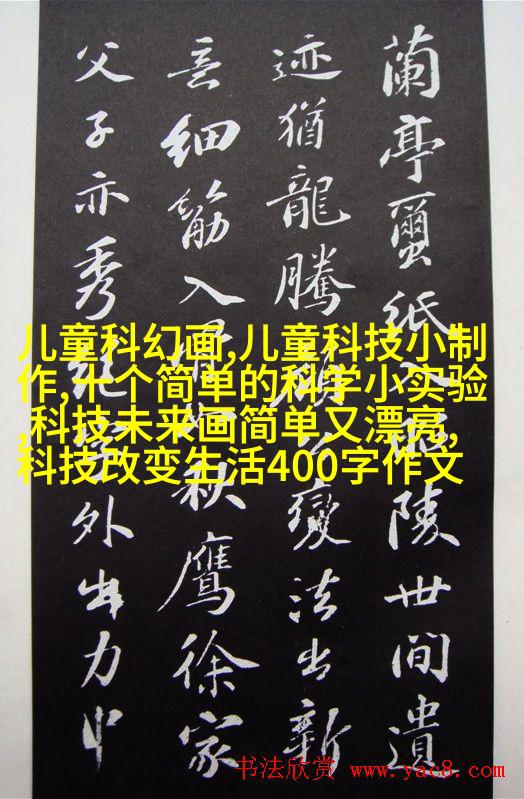 蘭亭蠒紙入昭陵世間遺
迹猶龍騰顏公變法出新
意細筋入骨如秋鷹徐家
父子亦秀絕字外出力中
儿童科幻画,儿童科技小制
作,十个简单的科学小实验
,科技未来画简单又漂亮,
科技改变生活400字作文
书法欣赏 www.yac8.com